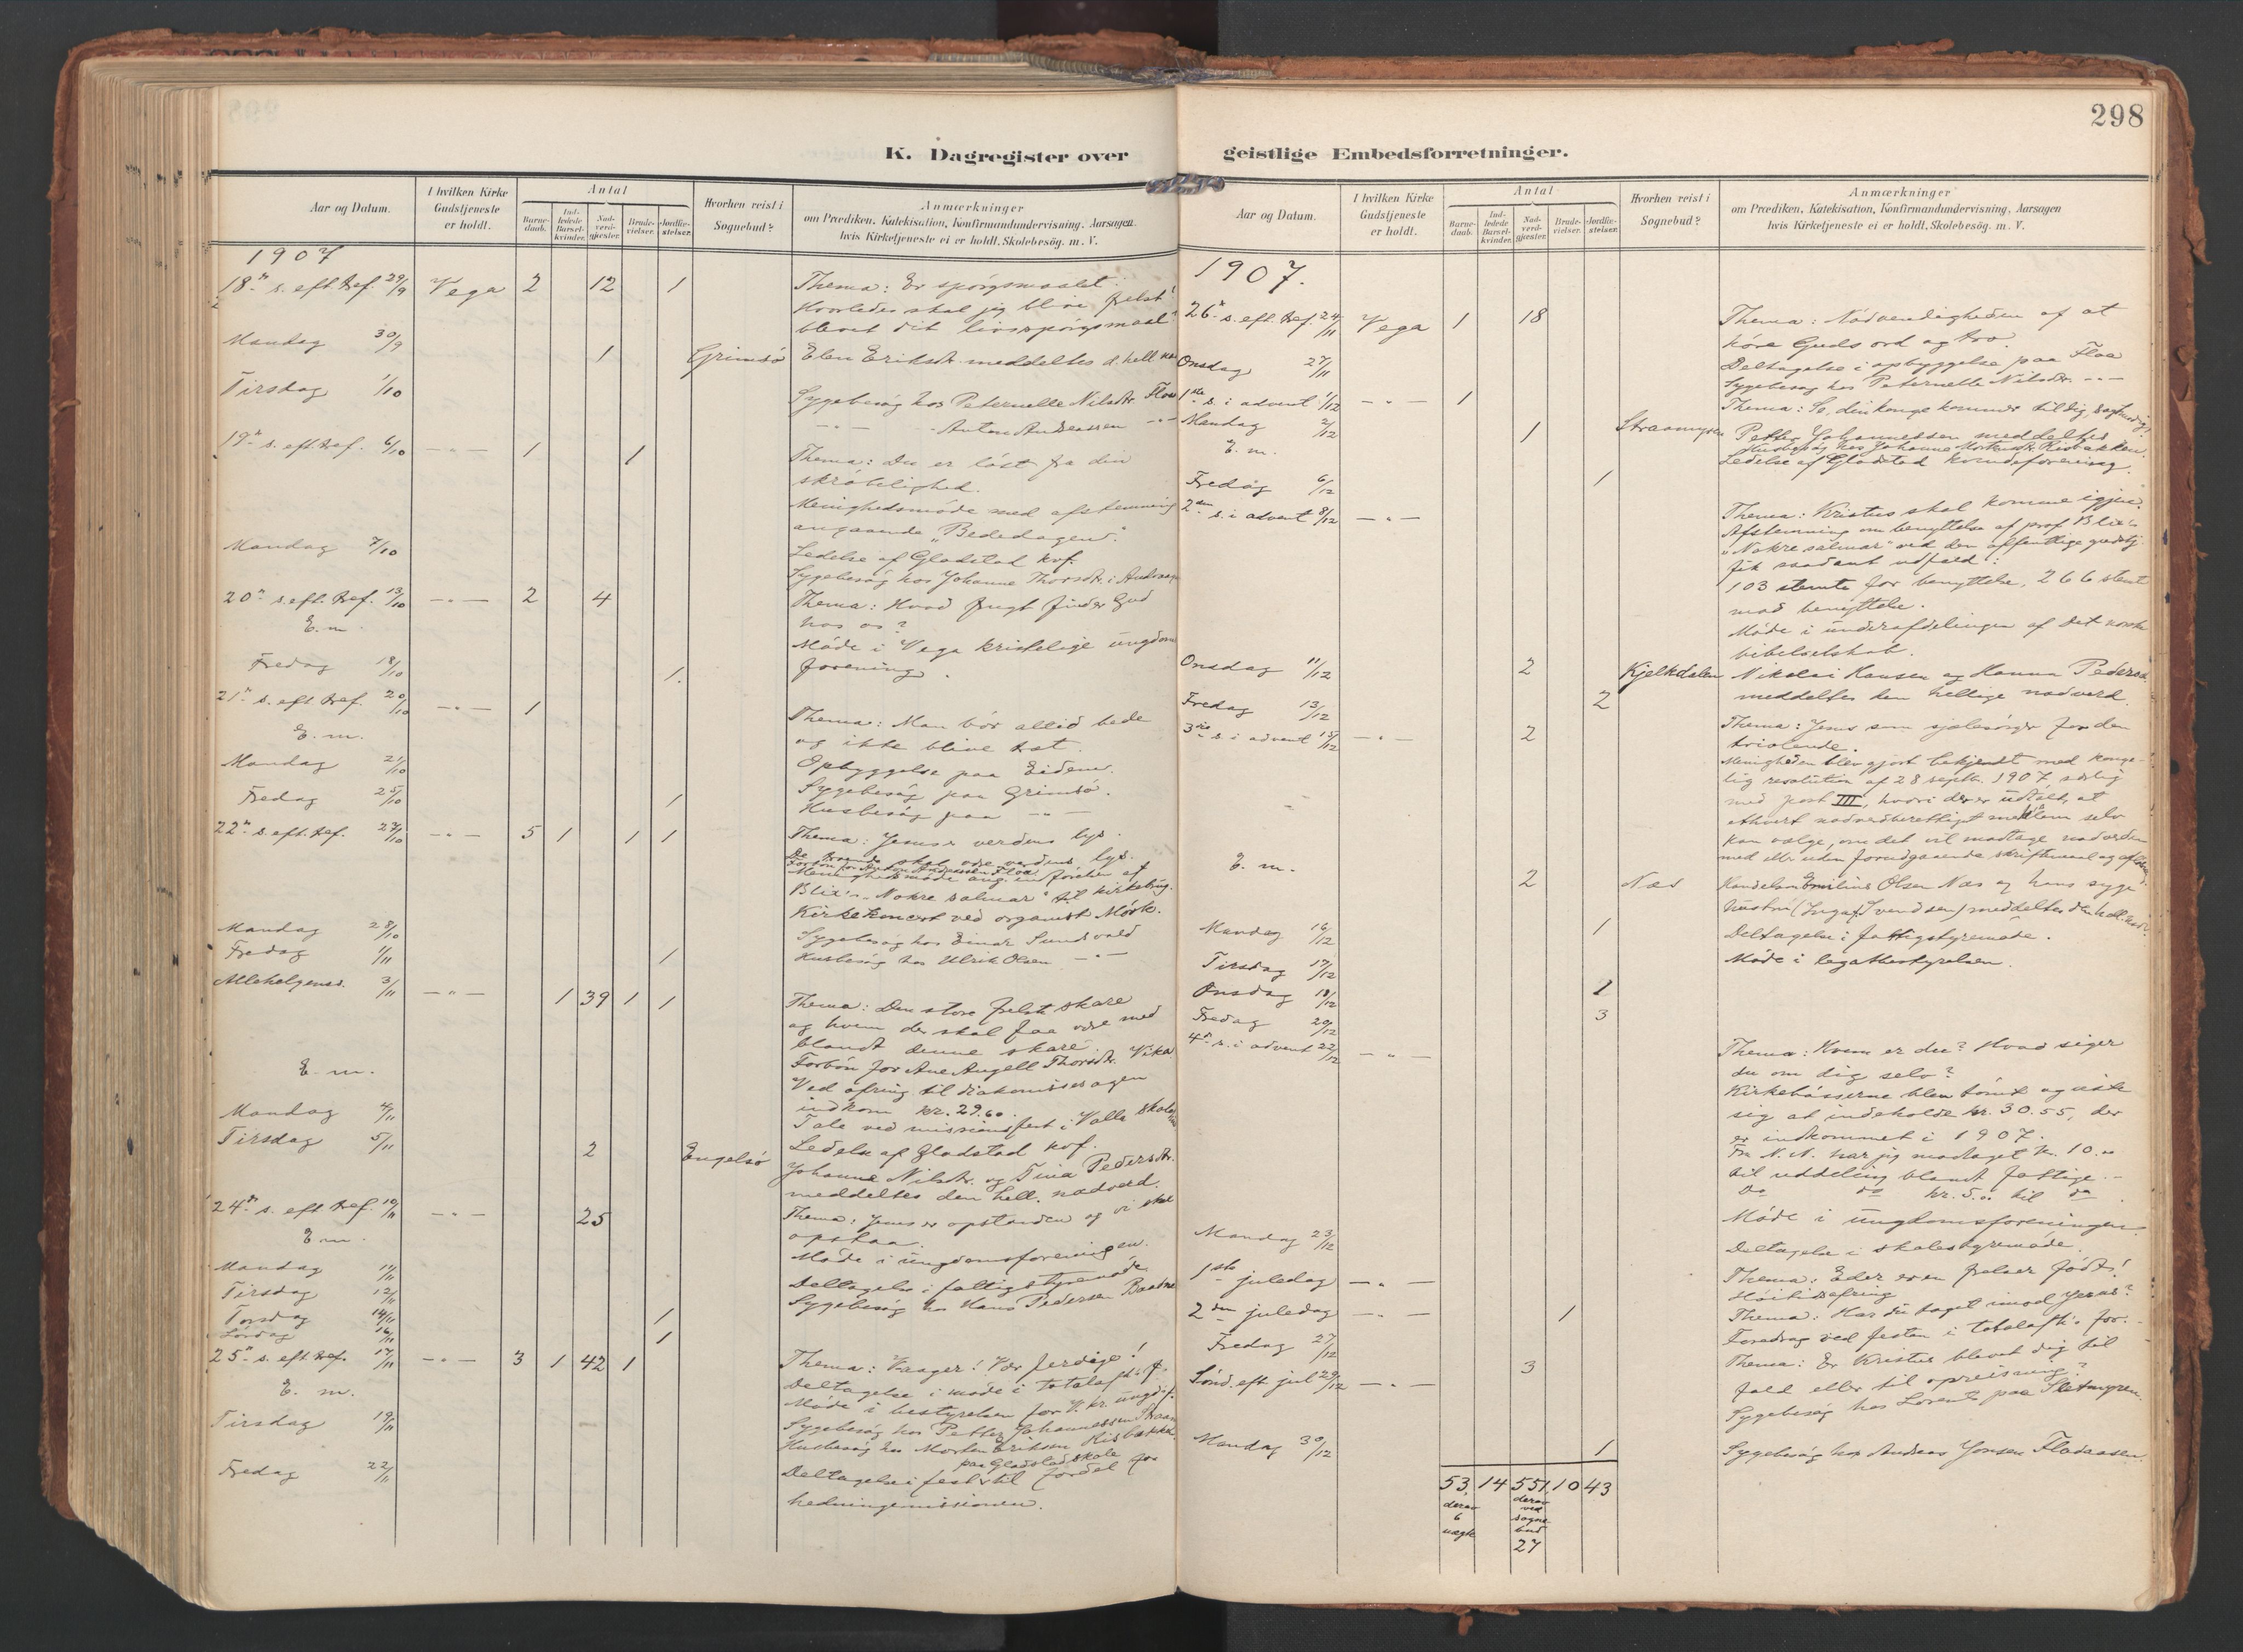 298
K. Dagregister over
Aar og Datum.
I hvilken Kirke Gudstjeneste er holdt.
Antal
Barnedaab.
Indledede Barselkvinder.
Nadverdgjæster.
Brudevielser.
Jordfæstelser.
Hvorhen reist i Sognebud?
Anmærkninger
om Prædiken, Katekisation, Konfirmandundervisning, Aarsagen
hvis Kirketjeneste ei er holdt, Skolebesøg. m. V.
1907
18n s. eft. tref. 29/9 Vega 2 12 1 Thema: Er spörgsmaalet:
Hvorledes skal jeg blive frelst?
blevet dit livsspörgsmaal?
Mandag 30/9 1 Grimsö Elen Eriksdr. meddeltes d. hell. nav
Tirsdag 1/10 Sygebesög hos Peternelle Nilsdr. Floa
— " — Anton Andreassen — " —
19n s. eft. tref. 6/10 — " — 1 1 Thema: Du er löst fra din
skröbelighed.
Menighedsmöde med afstemning
angaaende "Bededagen".
Mandag 7/10 Ledelse af Gladstad kvf.
Sygebesög hos Johanne Thorsdr. i
20n s. eft. tref. 13/10 — " — 2 4 Thema: Hvad frugt finder Gud
hos os?
E. m. Möde i Vega kristelige ungdoms
forening.
Fredag 18/10 1.
21n s. eft. tref. 20/10 — " — 1 Thema: Man bör altid bede
og ikke blive træt.
E. m. Opbyggelse paa Eidem.
Mandag 21/10 Sygebesög paa Grimsö.
Fredag 25/10 1 Husbesög paa — " —
22n s. eft. tref. 27/10 — " — 5 1 1 1 Thema: Jesus verdens lys.
De troende skal være verdens lys.
Forbön for Anton Andreassen Floa
Menighedsmöde ang. indförelse af
Blix's "Nokre salmar" til kirkebrug.
Kirkekoncert ved organist Mörk.
Mandag 28/10 Sygebesög hos Einar Sundsvold
Fredag 1/11 1 Husbesög hos Ulrik Olsen — " —
Allehelgenss. 3/11 — " — 1 39 1 1 Thema: Den store frelste skare
og hvem der skal faa være med
blandt denne skare.
Forbön for Ane Angell Thorsdr. Vika
Ved ofring til diakonissesagen
indkom kr. 29.60.
E. m. Tale ved missionsfest i Valla skole
Mandag 4/11 Ledelse af Gladstad kvf.
Tirsdag 5/11 2 Engelsö Johanne Nilsdr. og Tina Pedersdr.
meddeltes den hell. nadverd.
24n s. eft. tref. 10/11 — " — 25 Thema: Jesus er opstanden og vi skal
opstaa.
E. m. Möde i ungdomsforeningen.
Mandag 11/11 Deltagelse i fattigstyremöde
Tirsdag 12/11 Sygebesög hos Hans Pedersen
Torsdag 14/11 1
Lördag 16/11 1
25n s. eft. tref. 17/11 — " — 3 1 42 1 Thema: Vaager! Vær færdige!
E. m. Deltagelse i möde i totalafh. f.
Möde i bestyrelsen for V. kr. ungd.f.
Tirsdag 19/11 Sygebesög hos Petter Johannessen
Husbesög hos Morten Eriksen Risbakken
Fredag 22/11 Deltagelse i fest paa Gladstad skole til fordel for
hedningemissionen.
geistlige Embedsforretninger.
Aar og Datum.
I hvilken Kirke Gudstjeneste er holdt.
Antal
Barnedaab.
Indledede Barselkvinder.
Nadverdgjæster.
Brudevielser.
Jordfæstelser.
Hvorhen reist i Sognebud?
Anmærkninger
om Prædiken, Katekisation, Konfirmandundervisning, Aarsagen
hvis Kirketjeneste ei er holdt, Skolebesög. m. V.
1907.
26n s. eft. tref. 24/11 Vega 1 18 Thema: Nödvendigheden af at
höre Guds ord og tro.
Onsdag 27/11 Deltagelse i opbyggelse paa Floa
Sygebesög hos Peternelle Nilsdr. — " —
1ste s. i advent 1/12 — " — 1 Thema: Se, din konge kommer til dig, sagtmodig.
Mandag 2/12 1 Straamyren Petter Johannessen meddeltes
Husbesög hos Johanne Mortensdr. Risbakken.
E. m. Ledelse af Gladstad kvindeforening
Fredag 6/12 1
2den s. i advent 8/12 — " — Thema: Kristus skal komme igjen.
Afstemning om benyttelse af prof Blix's
"Nokre salmar" ved den offentlige gudstj.
fik saadant udfald:
103 stemte for benyttelse, 266 stemte
mod benyttelse.
Möde i underafdelingen af Det norske
bibelselskab.
Onsdag 11/12 2 Kjelkdalen Nikolai Hansen og Hanna Pedersdr.
meddeltes den hellige nadverd.
Fredag 13/12 2
3die s. i advent 15/12 — " — 2 Thema: Jesus som sjælesörger for den
tvivlende.
Menigheden blev gjort bekjendt med konge-
lig resolution af 28 septbr. 1907 særlig
med post III, hvori der er udtalt, at
ethvert nadverdberettiget medlem selv
kan vælge, om det vil modtage nadverden
med eller uden forudgaaende skriftemaal og aflösn.
E. m. 2 Næs Handelsm. Emilius Olsen Næs og hans syge
hustru (Inga Svendsen) meddeltes den hell. nadv.
Mandag 16/12 1 Deltagelse i fattigstyremöde.
Tirsdag 17/12 Möde i legatbestyrelsen.
Onsdag 18/12 1
Fredag 20/12 3
4de s. i advent 22/12 — " — Thema: Hvem er du? Hvad siger
du om dig selv?
Kirkebösserne blev tömt og viste
sig at indeholde kr. 30.55, der
er indkommet i 1907.
Fra N. N. har jeg modtaget kr. 10.00
til uddeling blandt fattige. —
Do do kr. 5.00 til do
Möde i ungdomsforeningen.
Mandag 23/12 Deltagelse i skolestyremöde.
1ste juledag — " — Thema: Eder er en frelser födt!
Höitidsofring
2den juledag — " — 1 Thema: Har du taget imod Jesus?
Fredag 27/12 Foredrag ved festen i totalafh. for.
Sönd. eft. jul 29/12 — " — 3 Thema: Er Kristus blevet dig til
fald eller til opreisning?
Sygebesög hos Lorents paa Sletmyren.
Mandag 30/12 1 Sygebesög hos Andreas Jonsen Fladaasen.
53, 14 551, 10 43
derav 6 uægte
derav ved sognebud 27